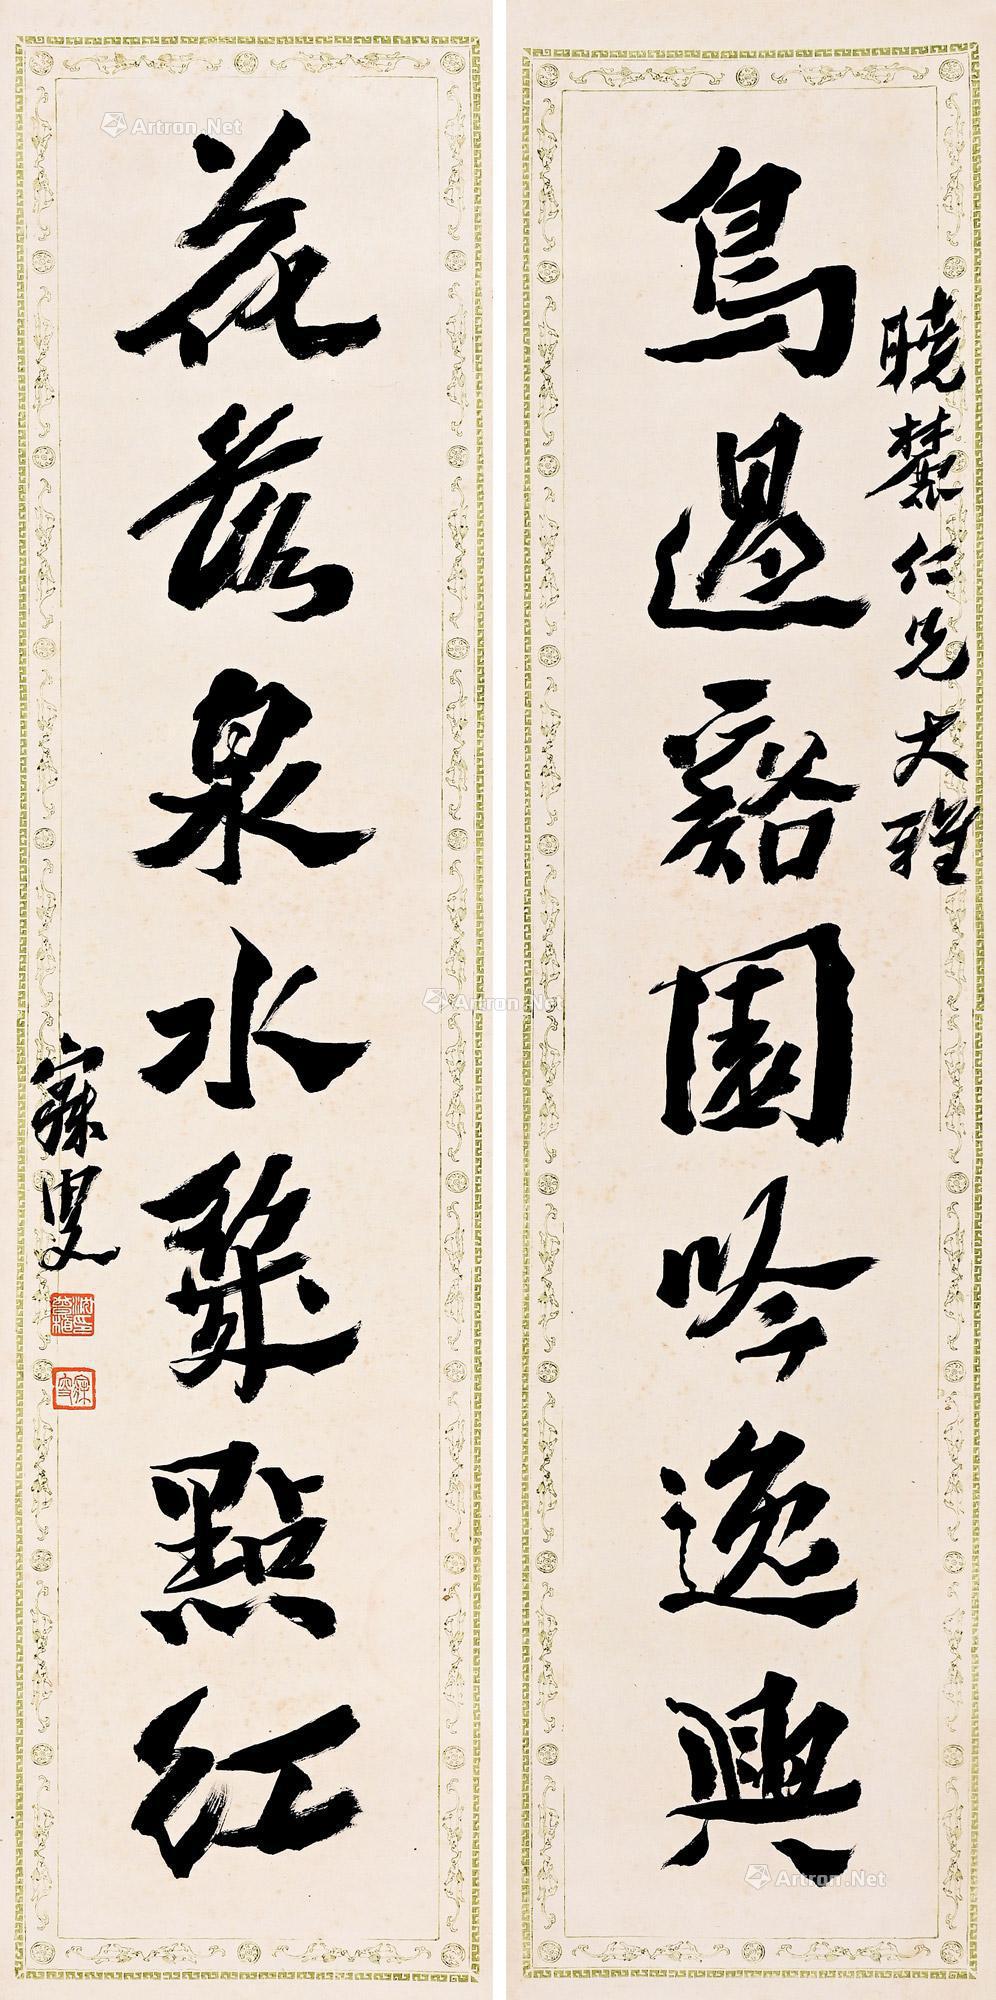 曉麓仁兄大雅
鳥過谿園吟逸興
花落泉水聚點紅
寐叟
Artron.Net
Artron.Net
Artron.Net